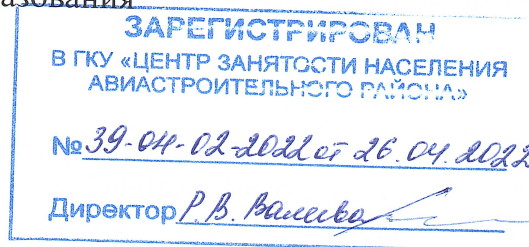 азования
ЗАРЕГИСТРИРОВАН
В ГКУ «ЦЕНТР ЗАНЯТОСТИ НАСЕЛЕНИЯ
АВИАСТРОИТЕЛЬНОГО РАЙОНА»
№ 39-04-02-2022 от 26.04.2022
Директор Р.В. Валеева